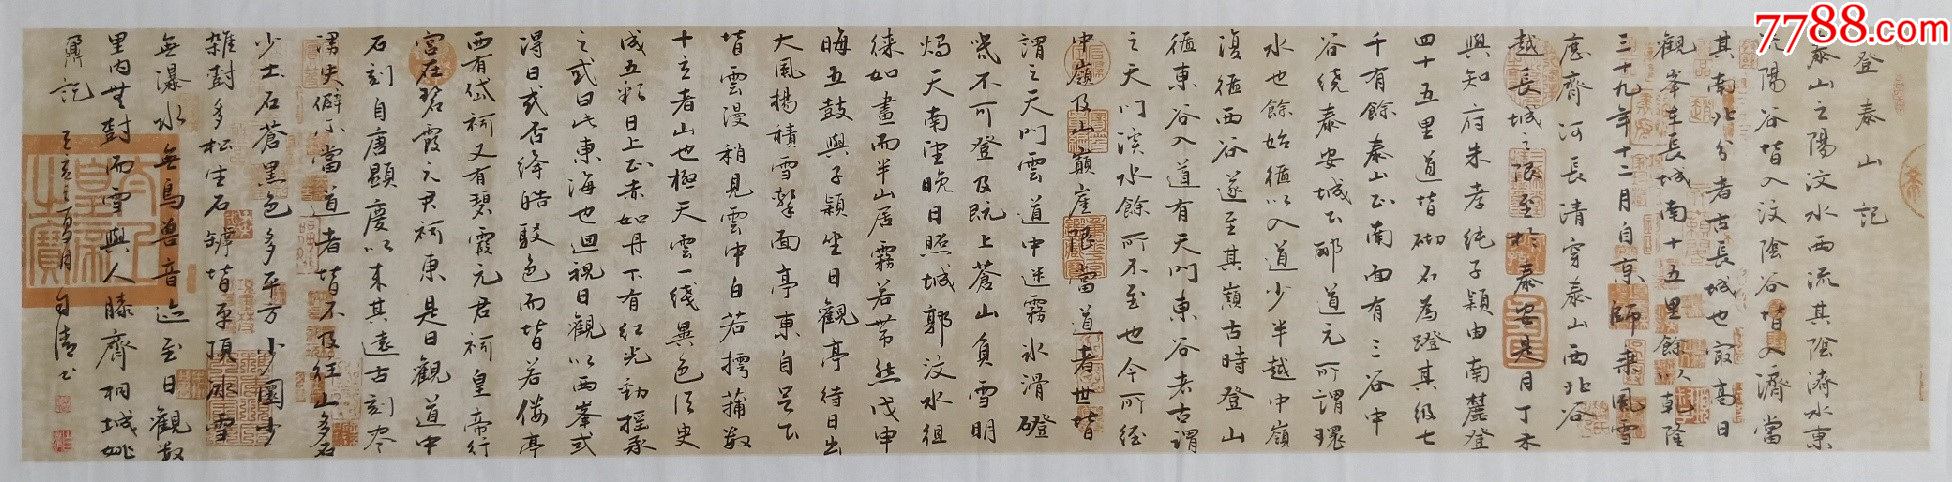 7788.com
登泰山記
泰山之陽汶水西流其陰濟水東
流陽谷皆入汶陰谷皆入濟當
其南北分者古長城也最高日
觀峯在長城南十五里餘以乾隆
三十九年十二月自京師乘風雪
歷齊河長清穿泰山西北谷
越長城之限至於泰安是月丁未
與知府朱孝純子潁由南麓登
四十五里道皆砌石為磴其級七
千有餘泰山正南面有三谷中
谷繞泰安城下酈道元所謂環
水也餘始循以入道少半越中嶺
復循西谷遂至其巔古時登山
循東谷入道有天門東谷者古謂
之天門溪水餘所不至也今所經
中嶺及山巔崖限當道者世皆
謂之天門雲道中迷霧冰滑磴
幾不可登及既上蒼山負雪明
燭天南望晚日照城郭汶水徂
徠如畫而半山居霧若帶然戊申
晦五鼓與子潁坐日觀亭待日出
大風揚積雪擊面亭東自足下
皆雲漫稍見雲中白若摴蒱數
十立者山也極天雲一綫異色須臾
成五彩日上正赤如丹下有紅光動搖承
之或曰此東海也迴視日觀以西峯或
得日或否絳皓駁色而皆若僂亭
西有岱祠又有碧霞元君祠皇帝行
宮在碧霞元君祠東是日觀道中
石刻自唐顯慶以來其遠古刻盡
漫失僻不當道者皆不及往山多石
少土石蒼黑色多平方少圜少
雜樹多松生石罅皆平頂冰雪
無瀑水無鳥獸音迹至日觀數
里內無樹而雪與人膝齊桐城姚
鼐記